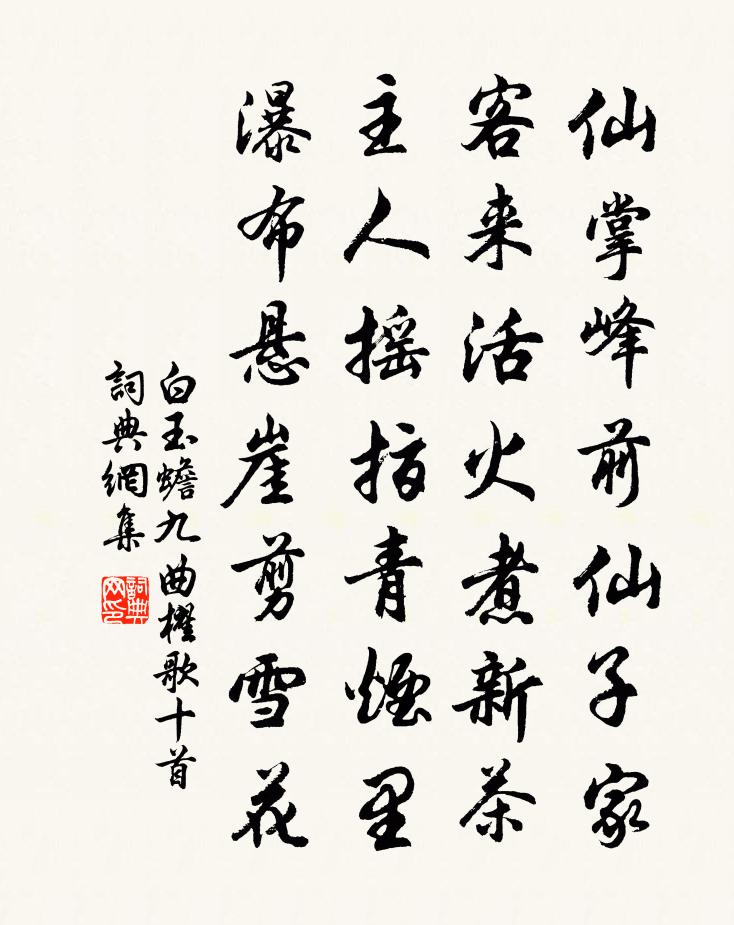 仙掌峰前仙子家
客来活火煮新茶
主人摇指青煙里
瀑布悬崖剪雪花
白玉蟾九曲櫂歌十首
詞典網集
詞典网印